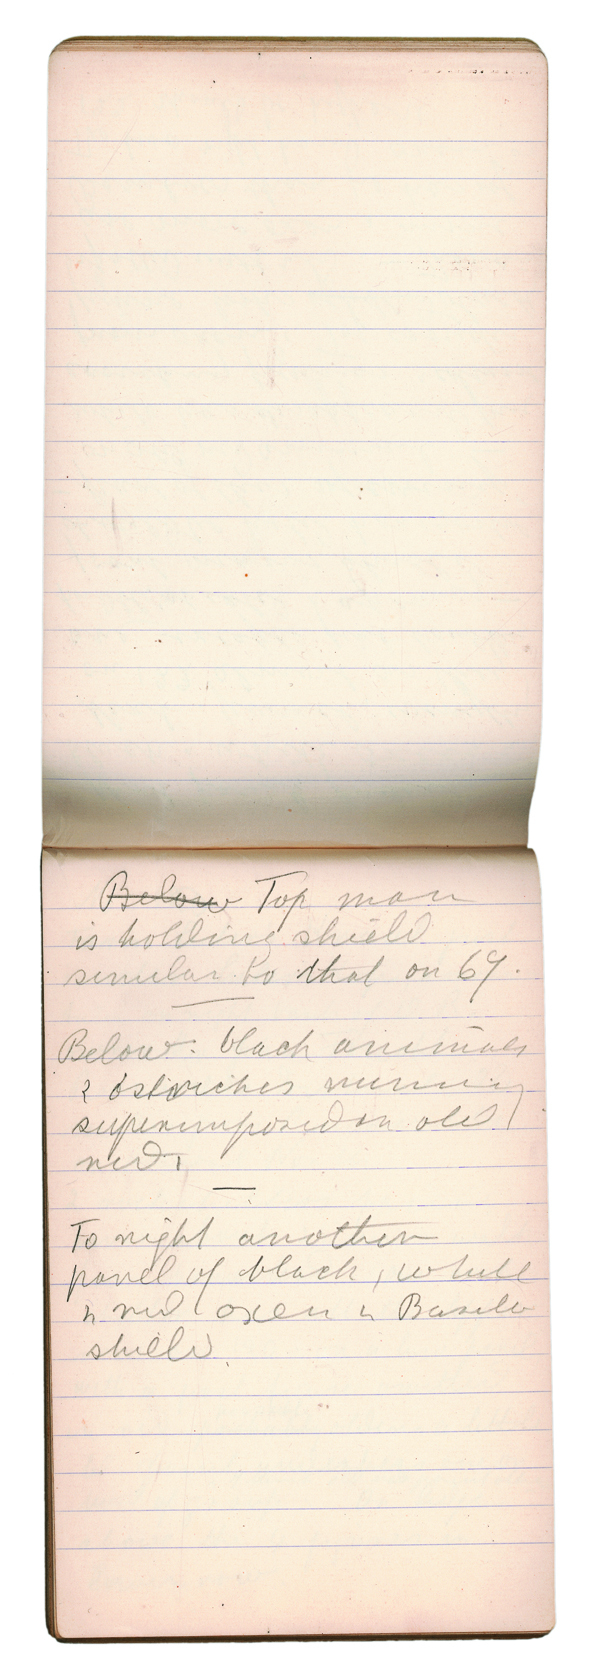 Below Top man
is holding shield
similar to that on 69.
Below: black animals
& ostriches running
superimposed on old
red.
To right another
panel of black, white
& red oxen & Basuto
shield.